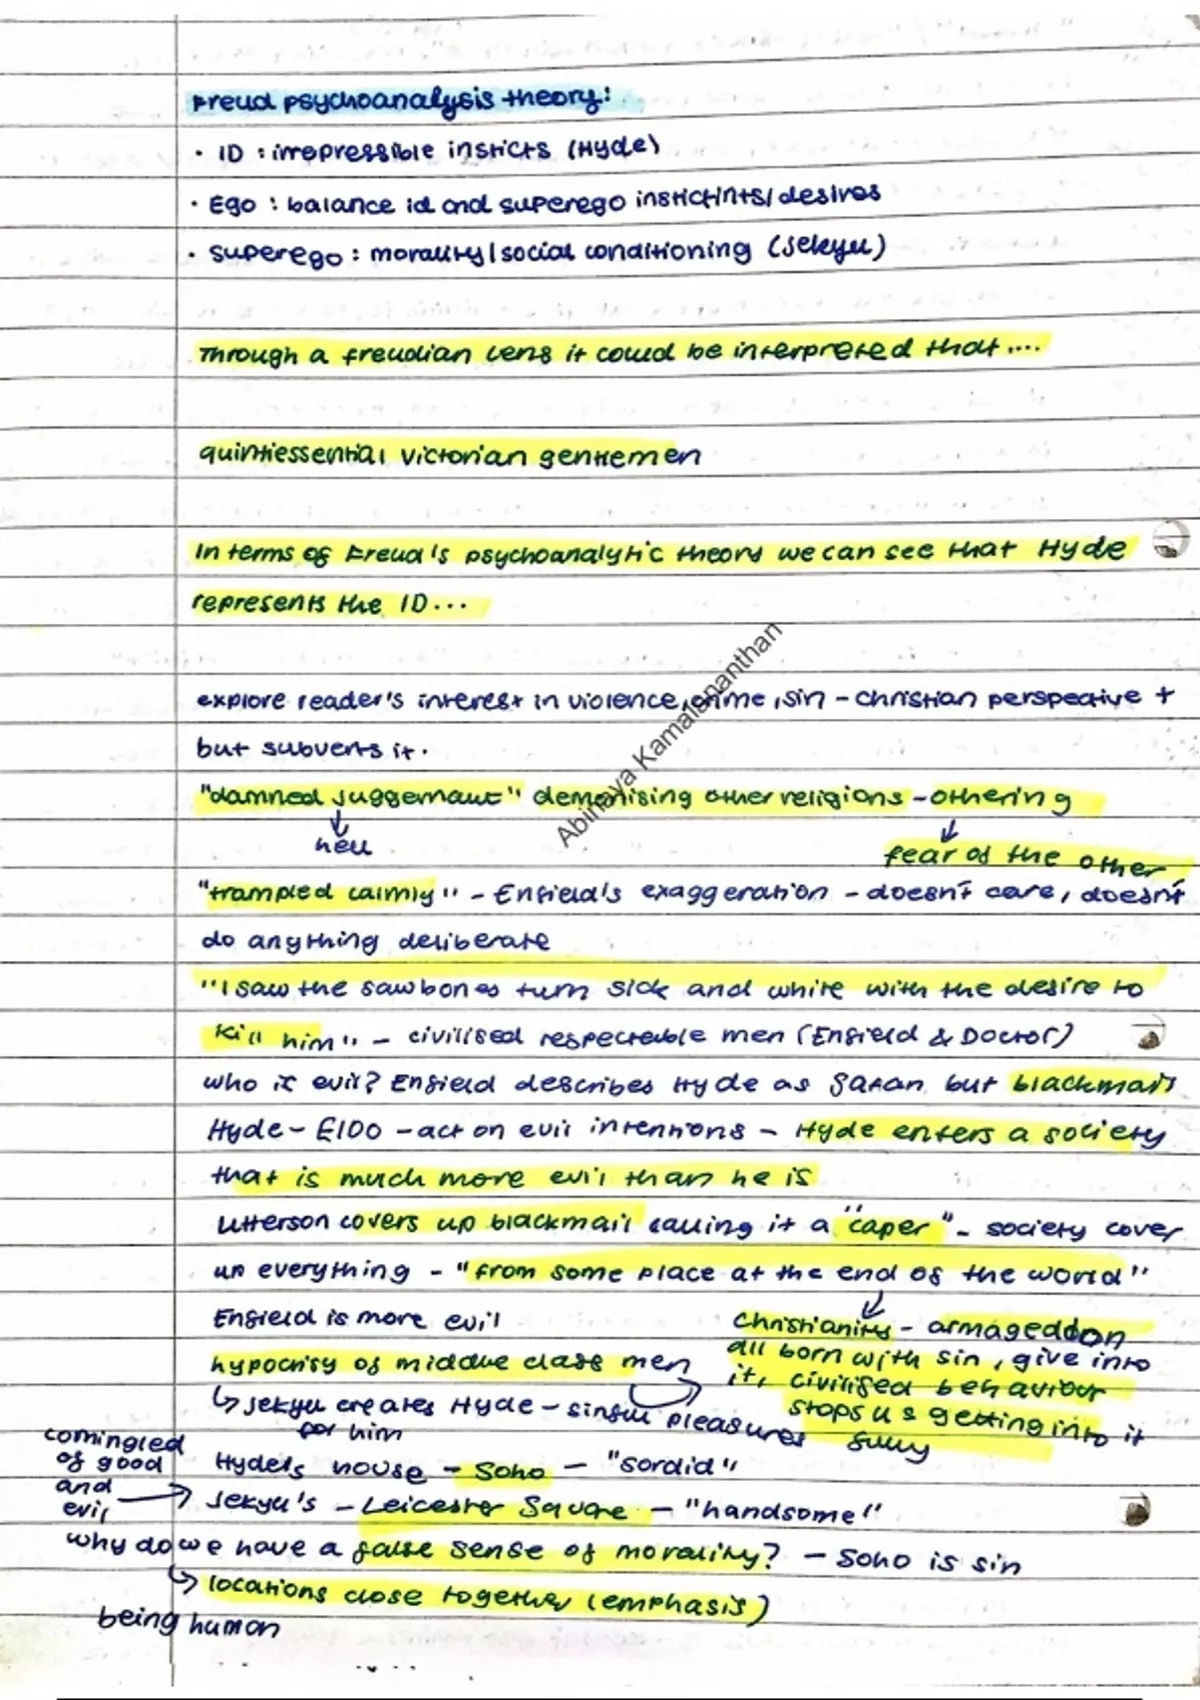 Freud psychoanalysis theory:
· ID : irrepressible insticts (Hyde)
· Ego : balance id and superego instictints/desires
· superego : morality/social conditioning (Jekyll)
Through a freudian lens it could be interpreted that ....
quintiessential victorian gentlemen
In terms of Freud's psychoanalytic theory we can see that Hyde
represents the ID...
explore reader's interest in violence, crime, sin - christian perspective +
but subverts it.
"damned juggernaut" demonising other religions - othering
hell
fear of the other
"trampled calmly" - Enfield's exaggeration - doesn't care, doesn't
do anything deliberate
"I saw the sawbones turn sick and white with the desire to
kill him" - civilised respectable men (Enfield & Doctor)
who is evil? Enfield describes Hyde as satan but blackmails
Hyde - £100 - act on evil intentions - Hyde enters a society
that is much more evil than he is
Utterson covers up blackmail calling it a "caper" - society cover
up everything - "from some place at the end of the world"
Enfield is more evil
Christianity - armageddon
all born with sin, give into
it, civilised behaviour
stops us getting into it
fully
hypocrisy of middle class men
↳ Jekyll creates Hyde - sinful pleasures
for him
comingled
of good
and
evil
Hyde's house - Soho - "sordid"
Jekyll's - Leicester Square - "handsome"
why do we have a false sense of morality? - Soho is sin
↳ locations close together (emphasis)
being human
Abinaya Kamalenanthan